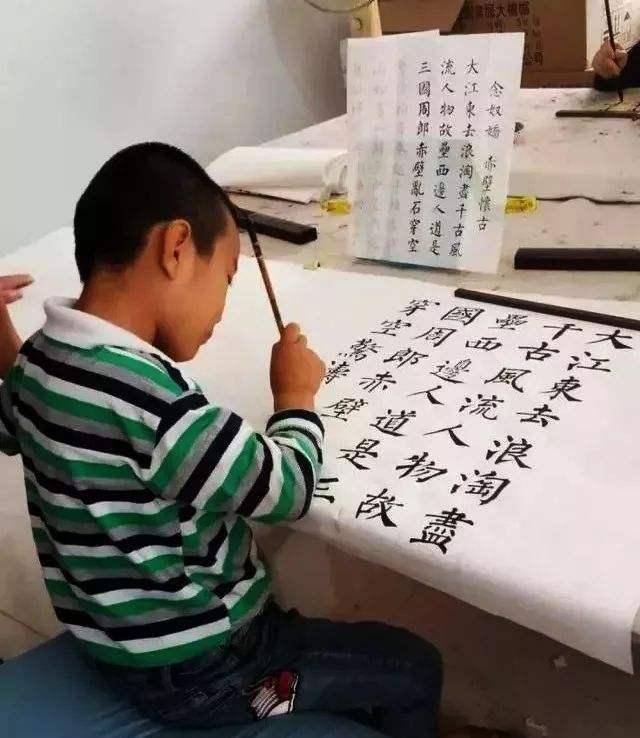 念奴嬌 赤壁懷古
大江東去浪淘盡千古風
流人物故壘西邊人道是
三國周郎赤壁亂石穿空
大江東去浪淘盡
千古風流人物故
壘西邊人道是三
國周郎赤壁
穿空驚濤
公司